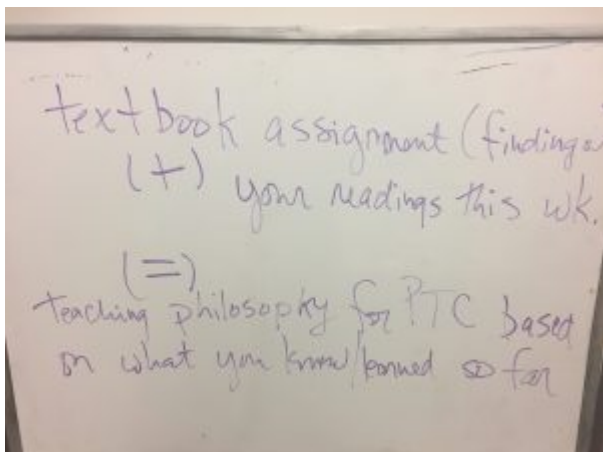 textbook assignment (finding
(+) your readings this wk.
(=)
teaching philosophy for PTC based
on what you know/learned so far